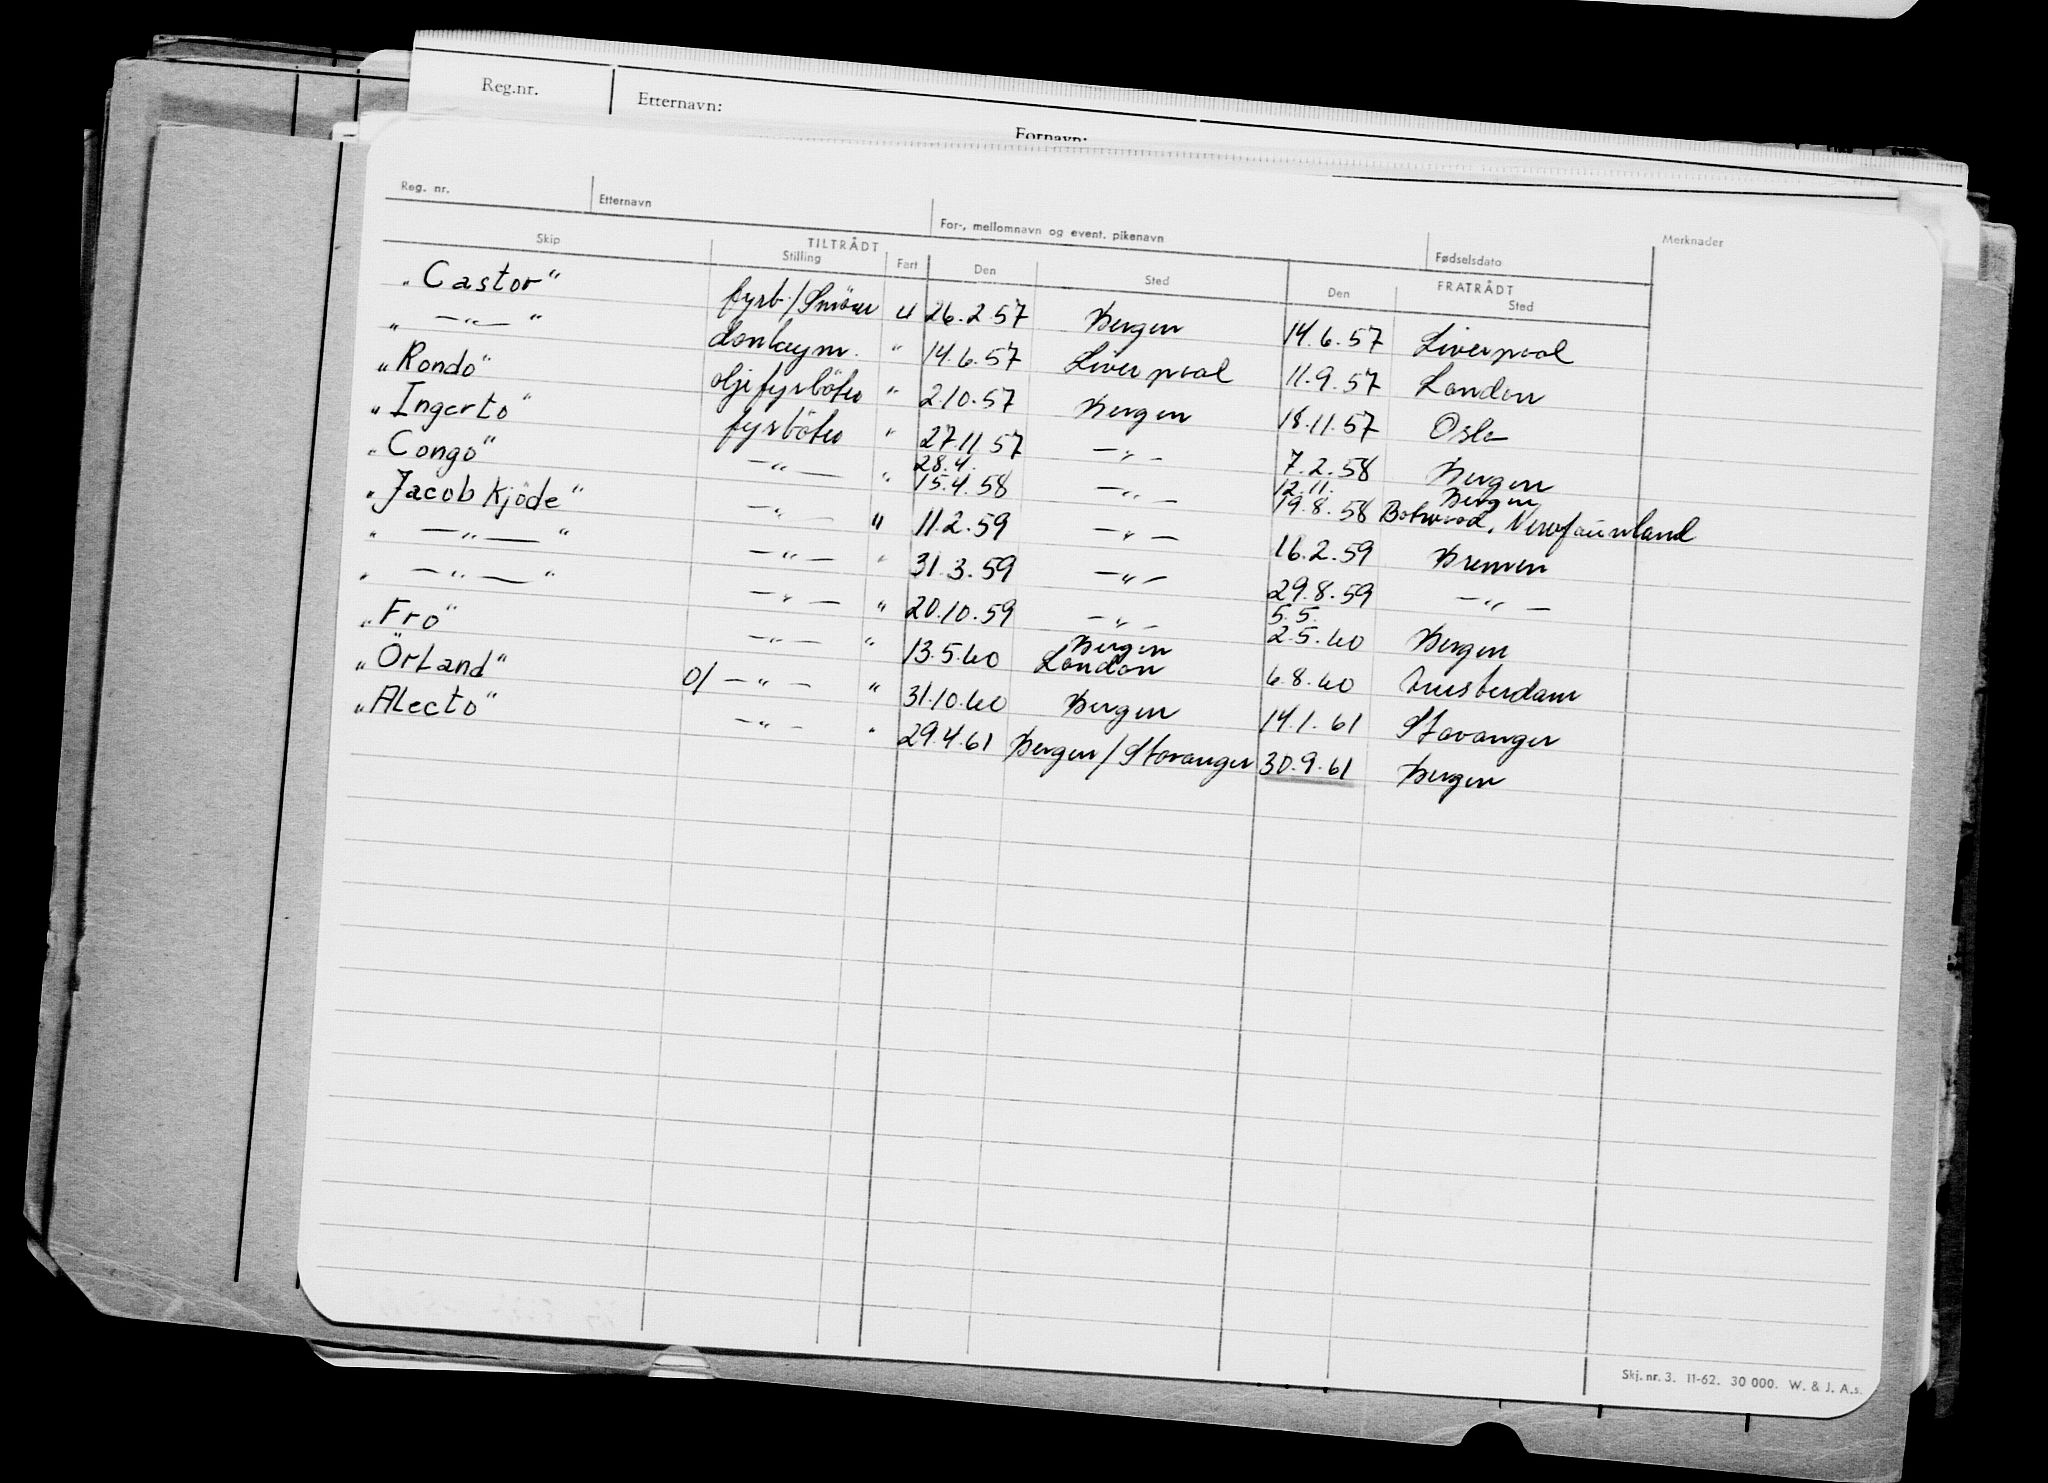 Reg.nr. Etternavn:
Fornavn:
Reg. nr. Etternavn For-, mellomnavn og event. pikenavn Fødselsdato Merknader
TILTRÅDT FRATRÅDT
Skip Stilling Fart Den Sted Den Sted
„Castor“ fyrb./Smörer u 26.2.57 Bergen 14.6.57 Liverpool
„ —„— “ donkeym. " 14.6.57 Liverpool 11.9.57 London
„Rondo“ oljefyrböter " 2.10.57 Bergen 18.11.57 Oslo
„Ingerto“ fyrböter " 27.11.57 —„— 7.2.58 Bergen
28.4. 12.11. Bergen
„Congo“ —„— " 15.4.58 —„— 19.8.58 Botwood, Newfaunland
„Jacob Kjöde“ —„— " 11.2.59 —„— 16.2.59 Bremen
„ —„— “ —„— " 31.3.59 —„— 29.8.59 —„—
5.5.
„ —„— “ —„— " 20.10.59 —„— 2.5.60 Bergen
Bergen
„Fro“ —„— " 13.5.60 London 6.8.60 Amsterdam
„Örland“ o/ —„— " 31.10.60 Bergen 14.1.61 Stavanger
„Alecto“ —„— " 29.4.61 Bergen/Stavanger 30.9.61 Bergen
Skj. nr. 3. 11-62. 30 000. W. & J. A.s.